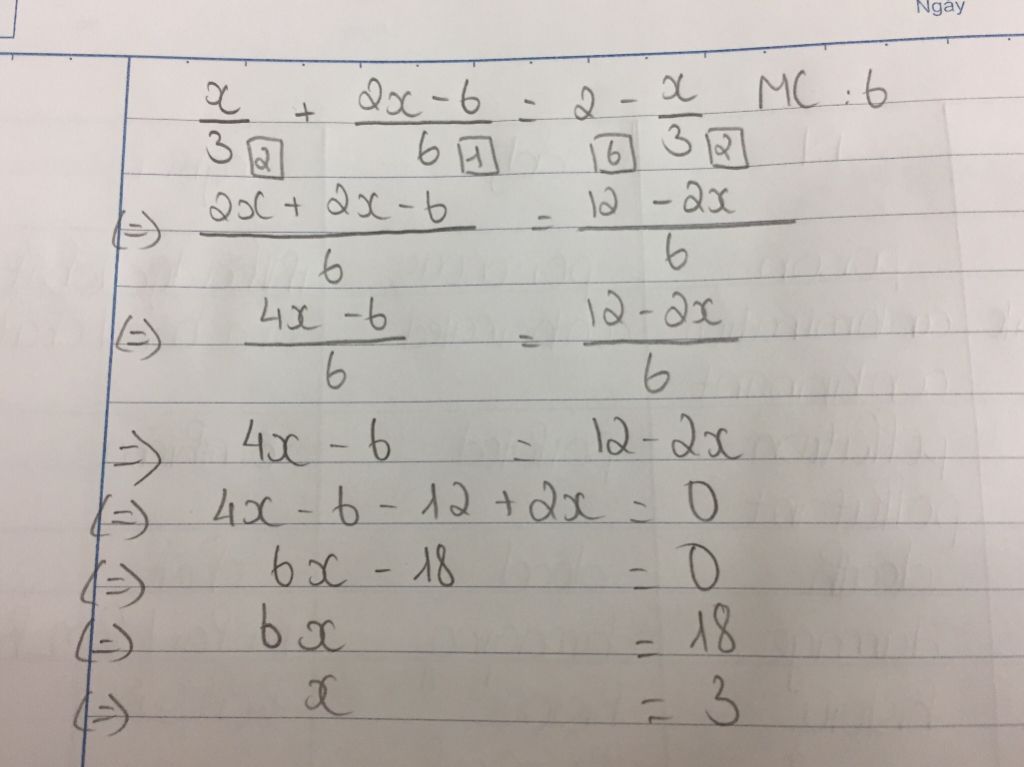 Ngày
x/3 [2] + (2x - 6)/6 [1] = 2 [6] - x/3 [2] MC : 6
(=) (2x + 2x - 6)/6 = (12 - 2x)/6
(=) (4x - 6)/6 = (12 - 2x)/6
=> 4x - 6 = 12 - 2x
(=) 4x - 6 - 12 + 2x = 0
(=) 6x - 18 = 0
(=) 6x = 18
(=) x = 3